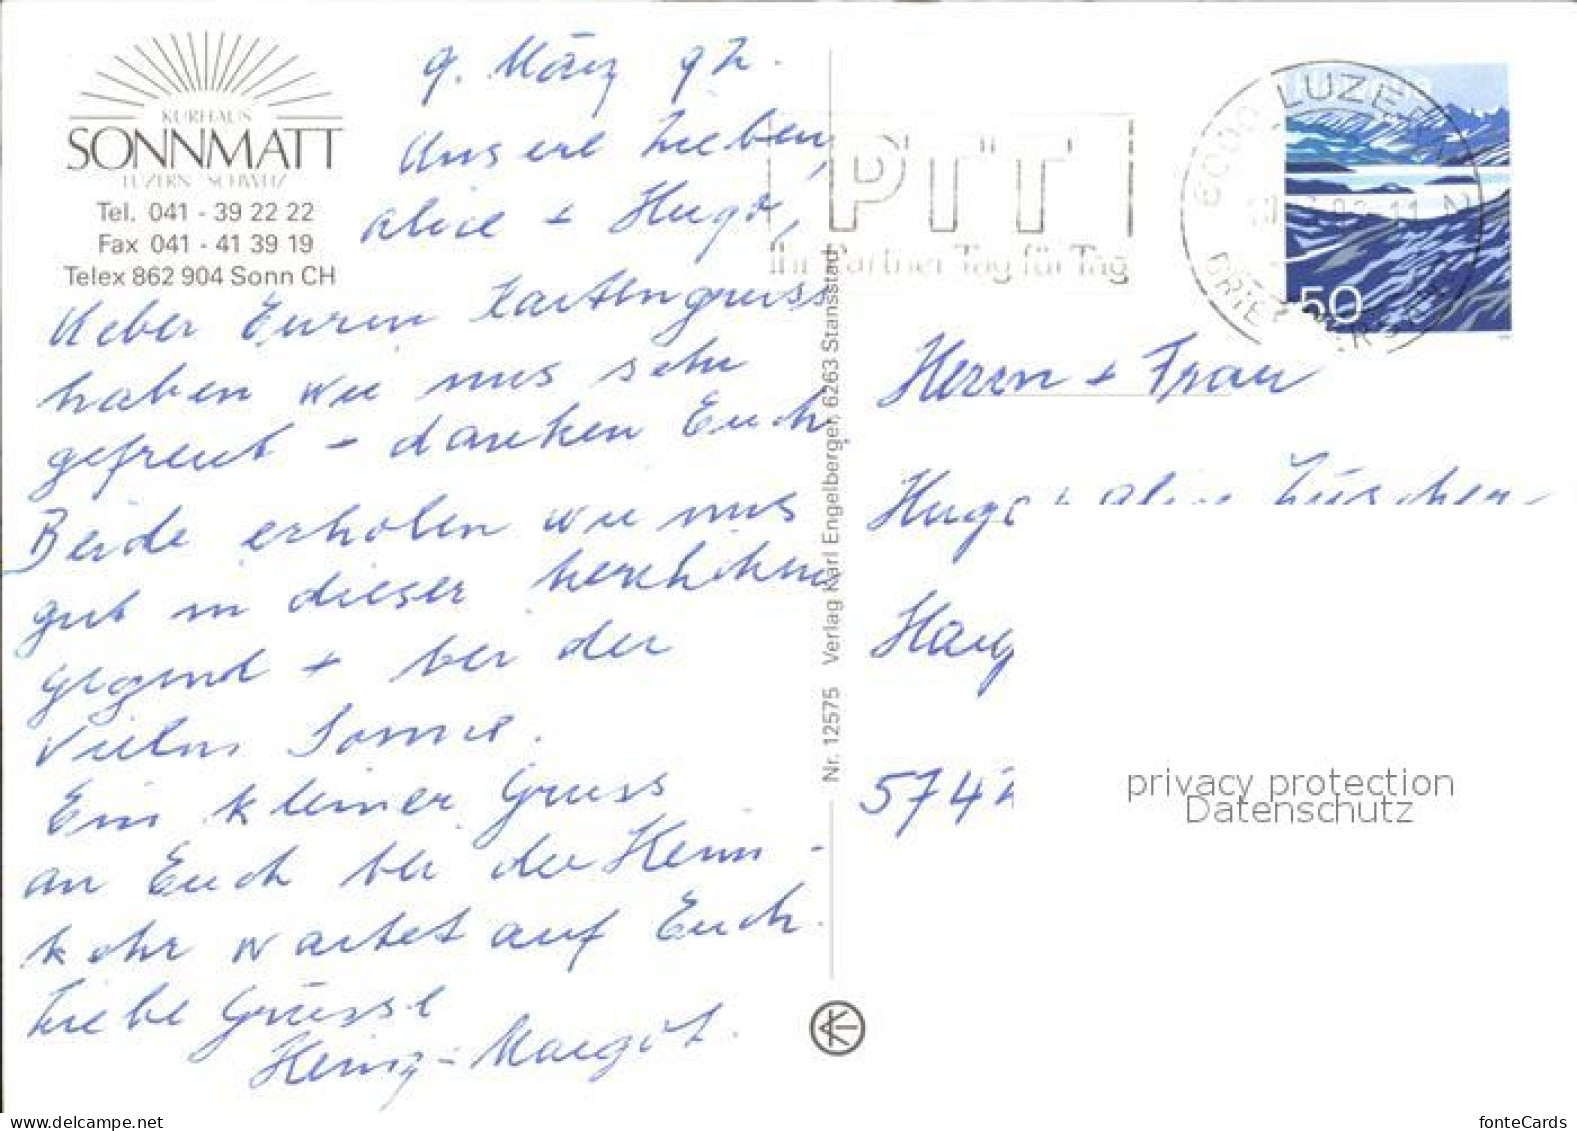 KURHAUS
SONNMATT
LUZERN SCHWEIZ
Tel. 041 - 39 22 22
Fax 041 - 41 39 19
Telex 862 904 Sonn CH
9. März 92.
Unsere Lieben,
Alice + Hugo,
Ueber Euren Kartengruss
haben wir uns sehr
gefreut - danken Euch
Beide erholen wir uns
gut in dieser herrlichen
Gegend + bei der
vielen Sonne.
Ein kleiner Gruss
an Euch bei der Heim-
kehr wartet auf Euch.
Liebe Grüsse
Heinz - Margot.
Nr. 12575 Verlag Karl Engelberger, 6263 Stansstad
PTT
Ihr Partner Tag für Tag
6000 LUZERN
50
Herrn + Frau
Hugo Alice
5742
privacy protection
Datenschutz
www.delcampe.net
fonteCards